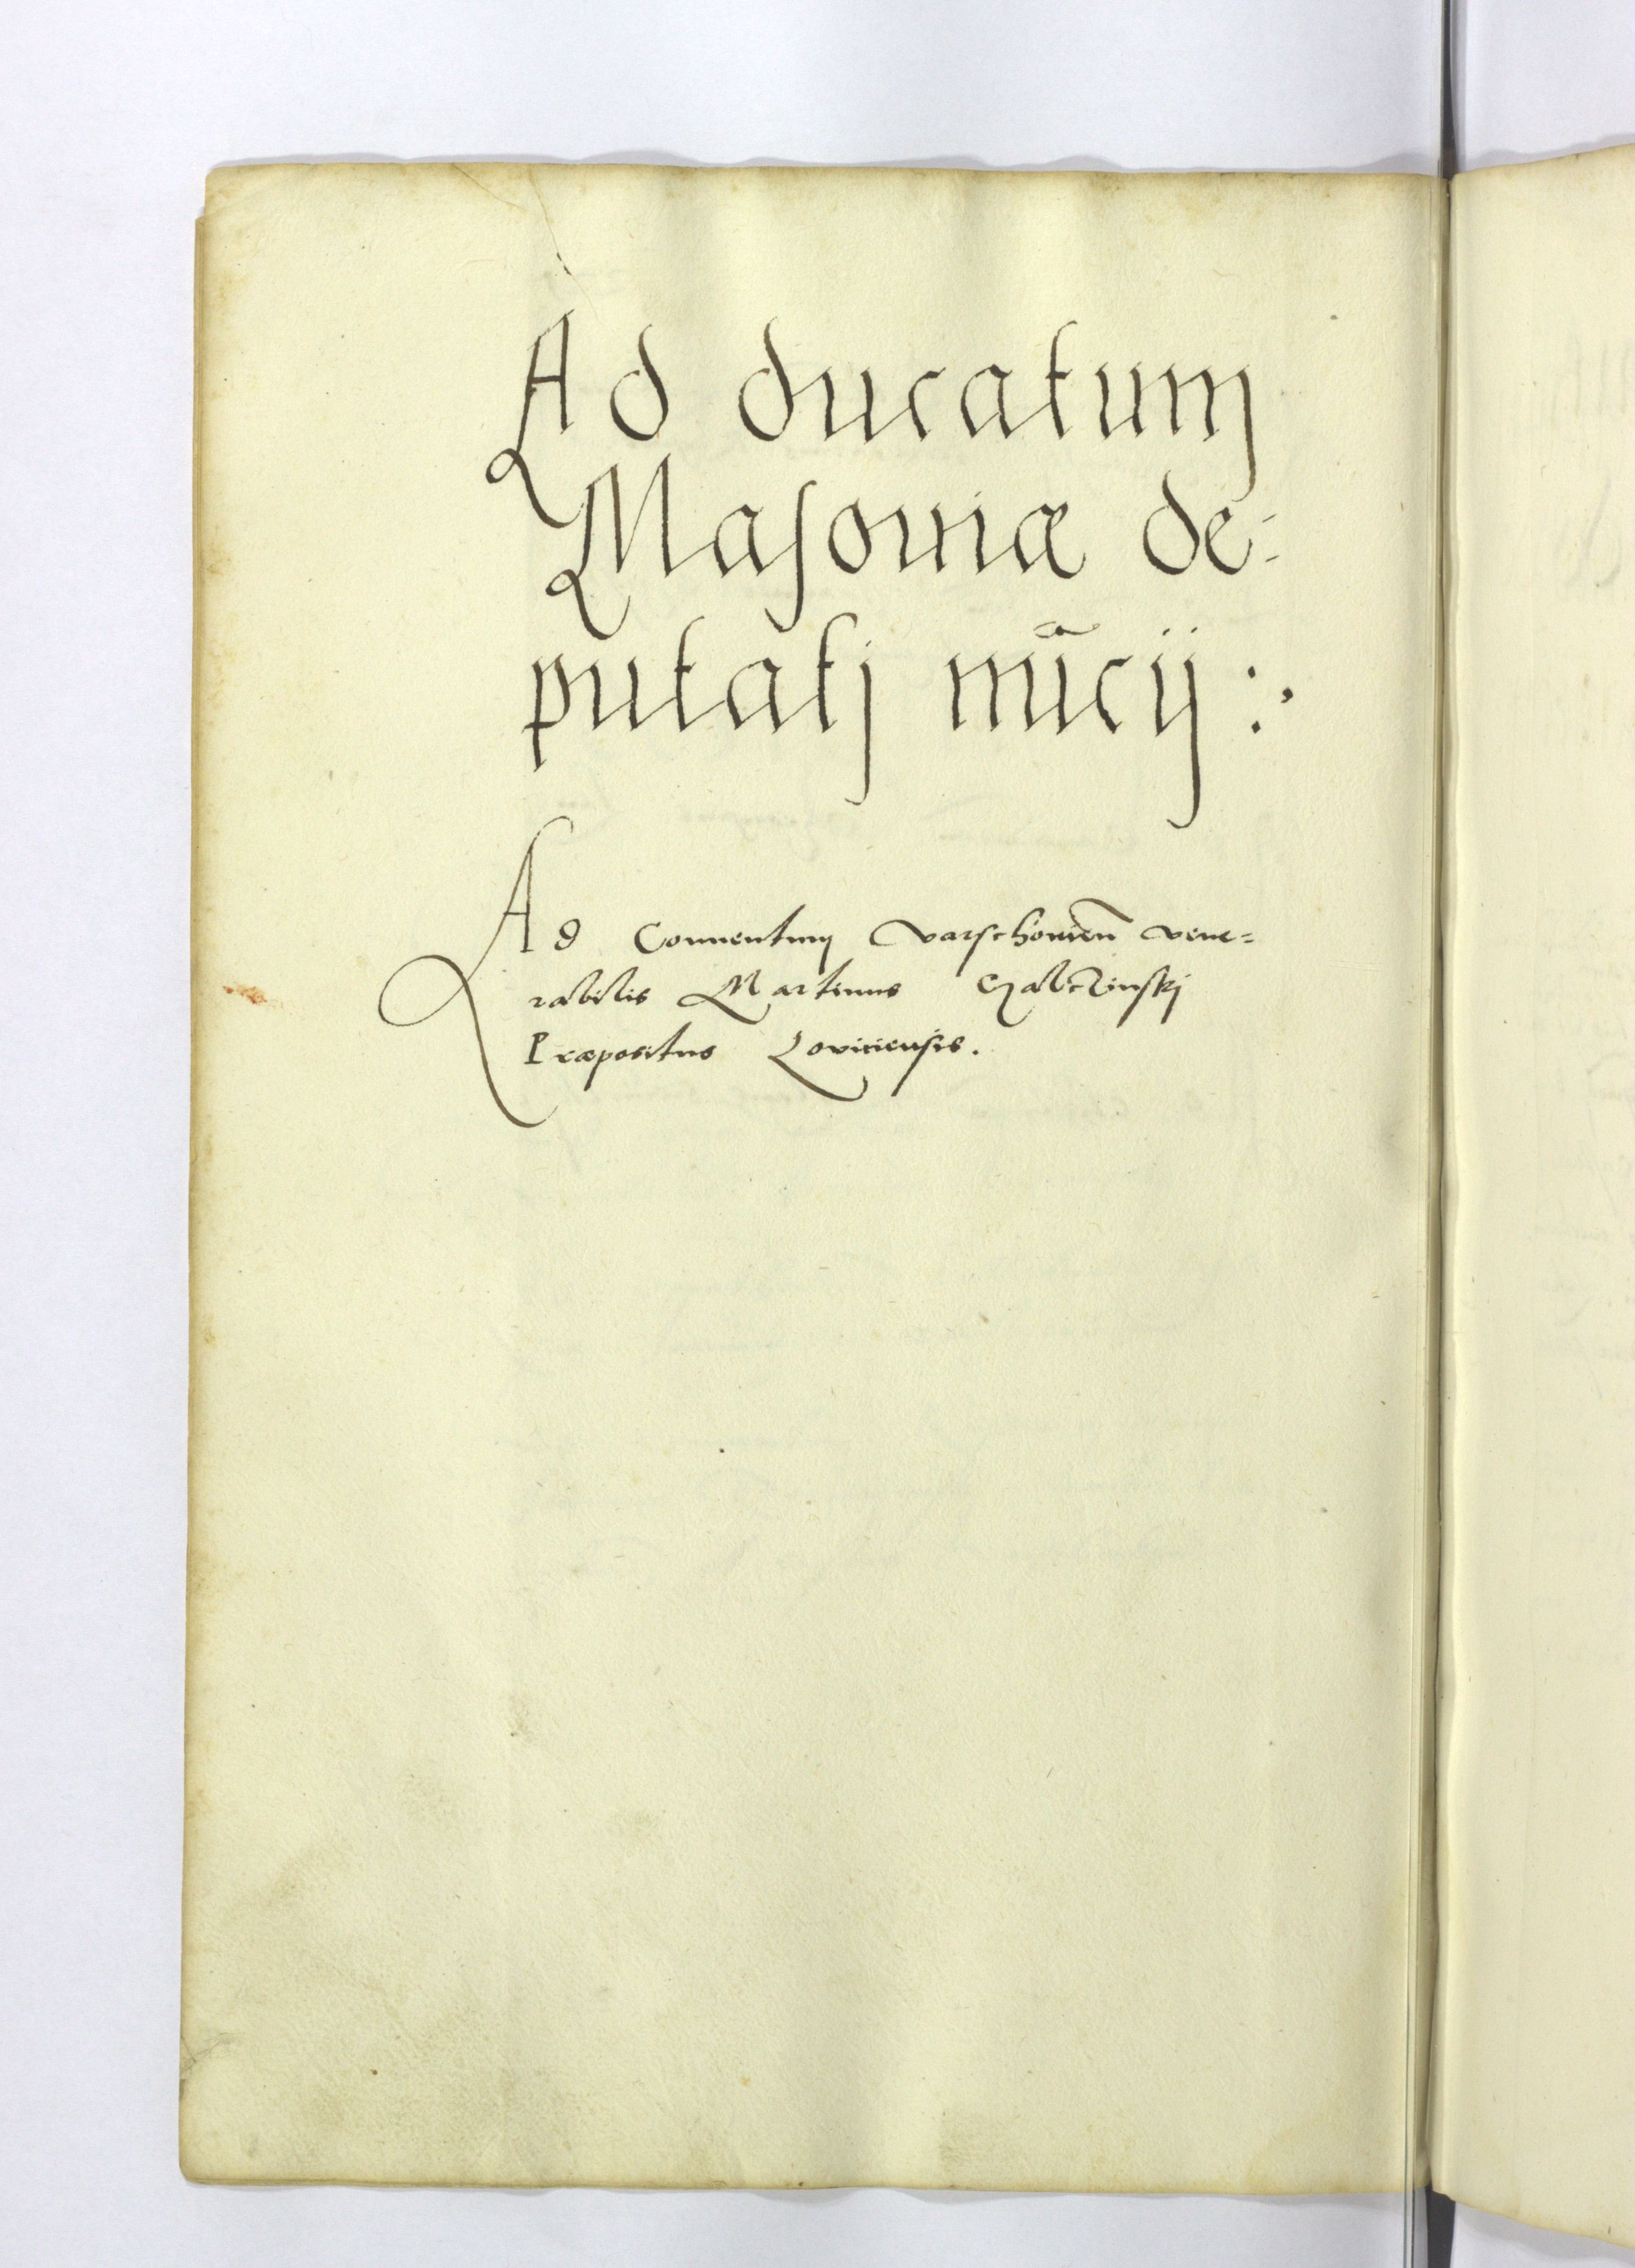 Ad ducatum
Masoniæ de-
putatj nūcij :.
Ad Conuentum Varschouien̄ vene=
rabilis Martinus Czalczinskj
Præpositus Loviciensis.